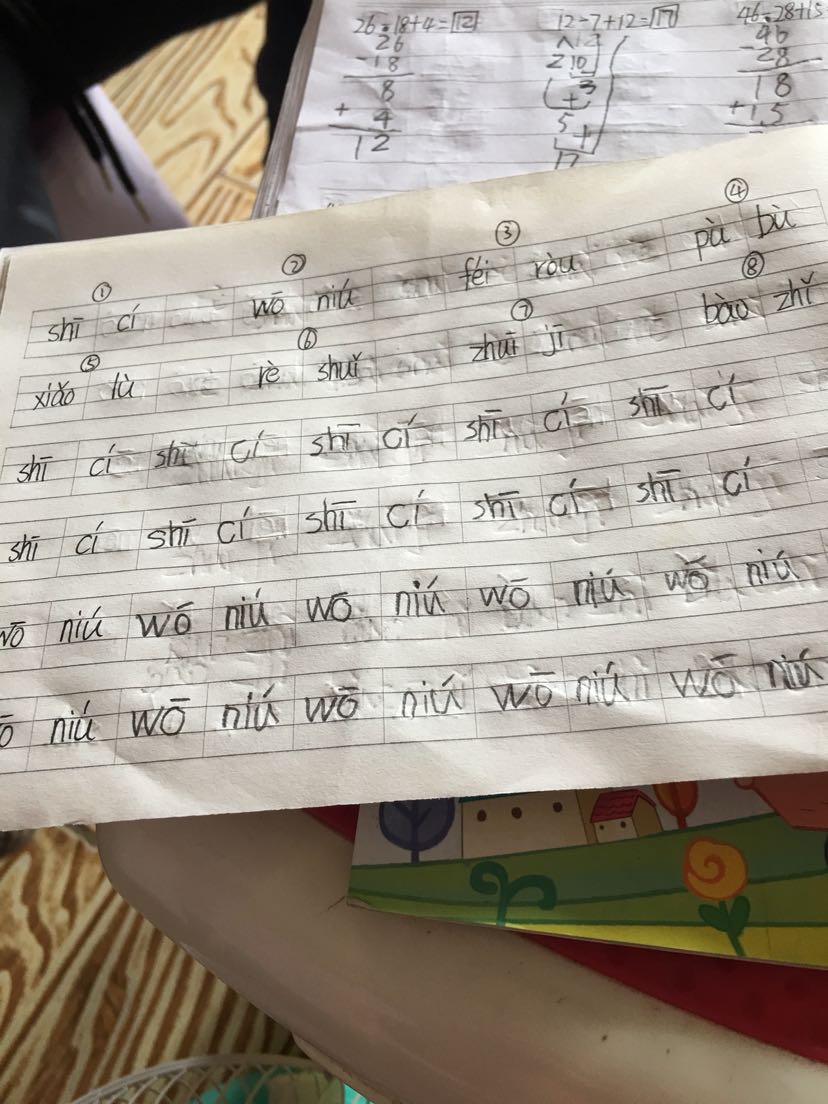 26-18+4=12 12-7+12=17 46-28+15
26
-18
8
+ 4
12
12
2 10
3
+
5
17
46
-28
18
+15
① ② ③ ④
shī cí wō niú féi ròu pù bù
⑤ ⑥ ⑦ ⑧
xiǎo lù rè shuǐ zhuī jī bào zhǐ
shī cí shī cí shī cí shī cí shī cí
shī cí shī cí shī cí shī cí shī cí
wō niú wō niú wō niú wō niú wō niú
ō niú wō niú wō niú wō niú wō niú